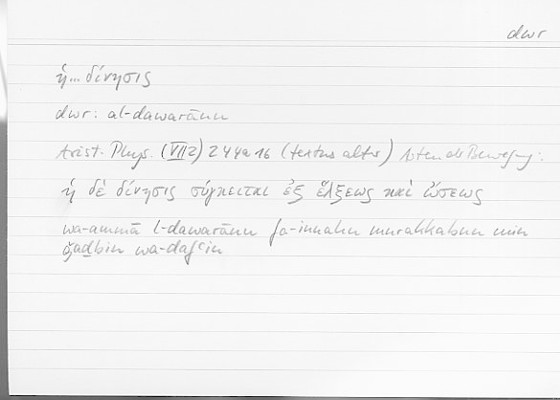 dwr
ἡ... δίνησις
dwr: al-dawarānu
Arist. Phys. (VII 2) 244a16 (textus alter) Arten der Bewegung:
ἡ δὲ δίνησις σύγκειται ἐξ ἕλξεως καὶ ὤσεως
wa-ammā l-dawarānu fa-innahu murakkabun min
ǧaḏbin wa-dafʿin